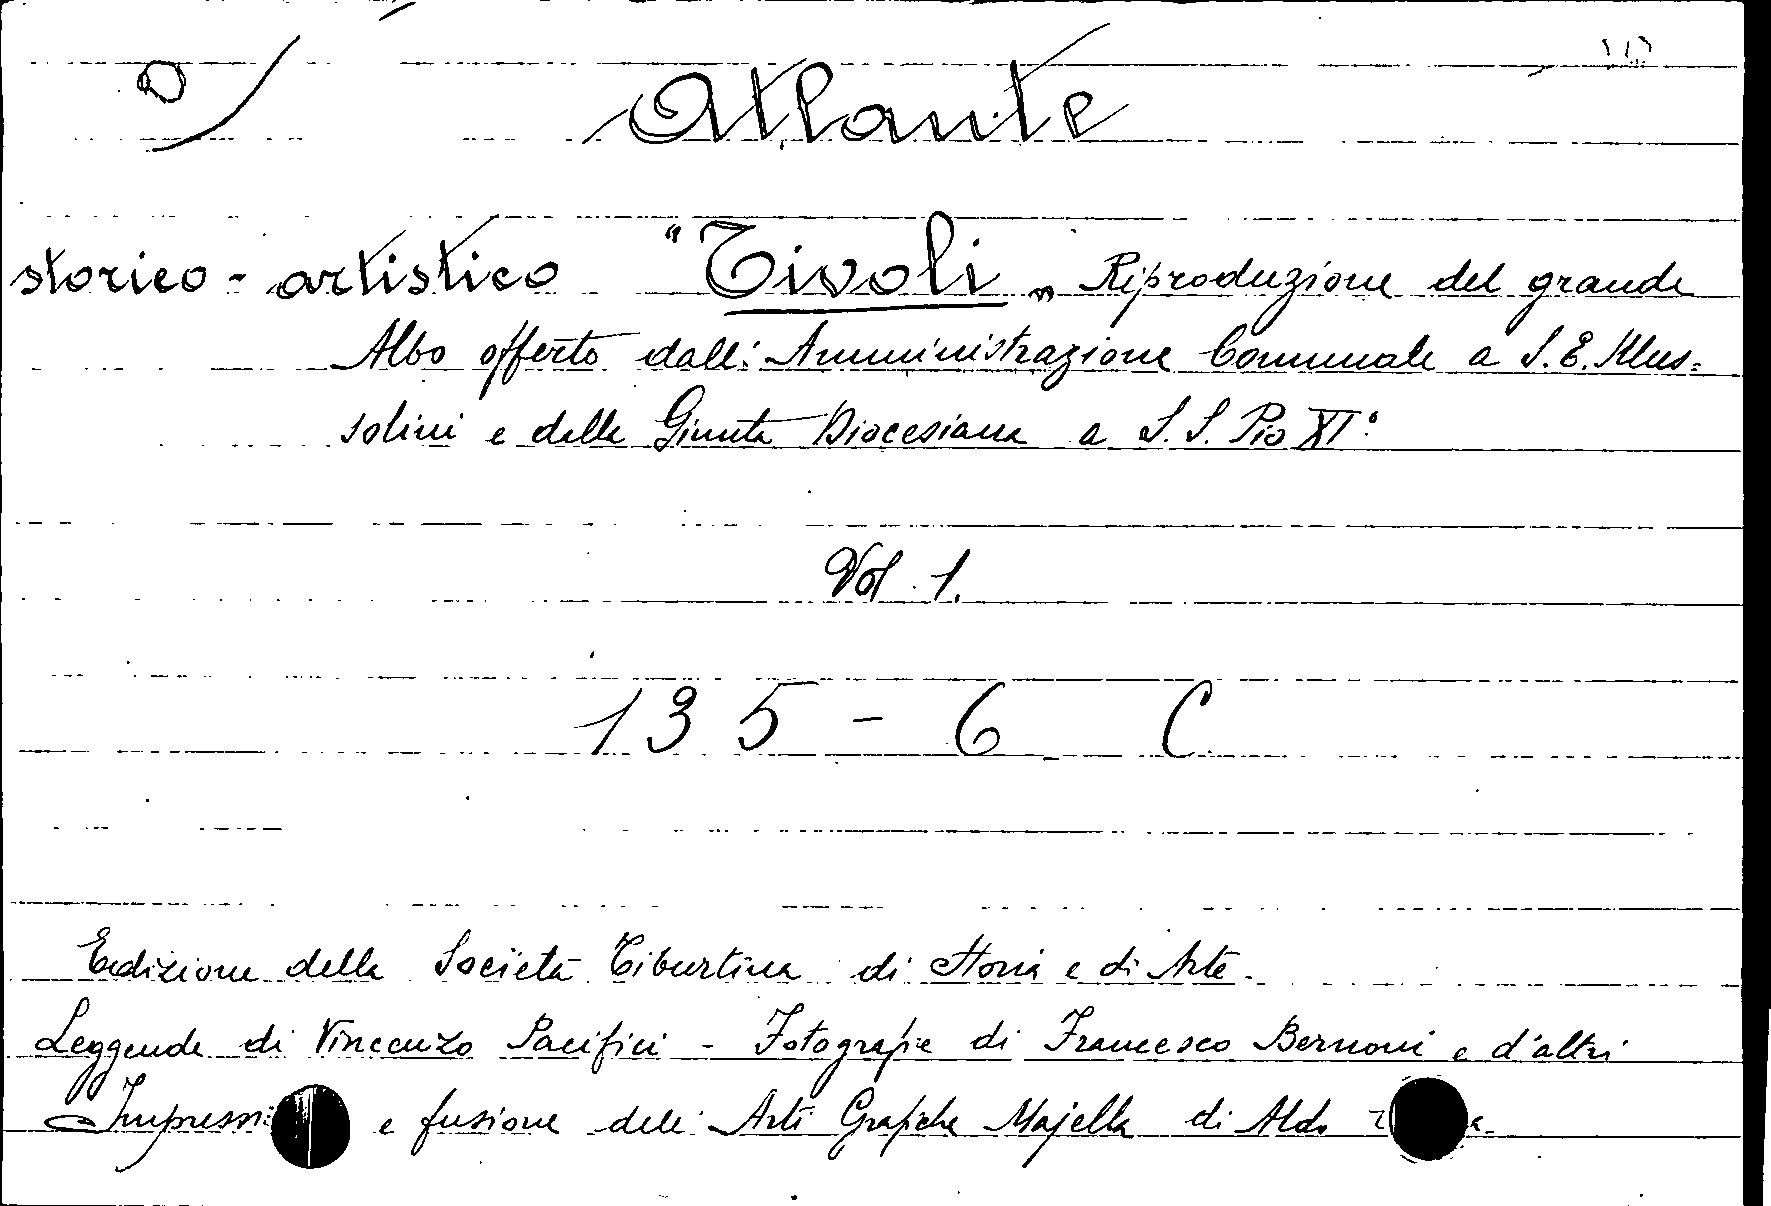 Atlante
storico - artistico "Tivoli" Riproduzione del grande
Albo offerto dall'Amministrazione Comunale a S.E. Mus=
solini e dalla Giunta Diocesiana a S.S. Pio XI°
Vol. 1.
135 - 6 C
Edizione della Società Tiburtina di Storia e di Arte.
Leggende di Vincenzo Pacifici - Fotografie di Francesco Bernoni e d'altri
e fusione dell' Arti Grafiche Majella di Aldo